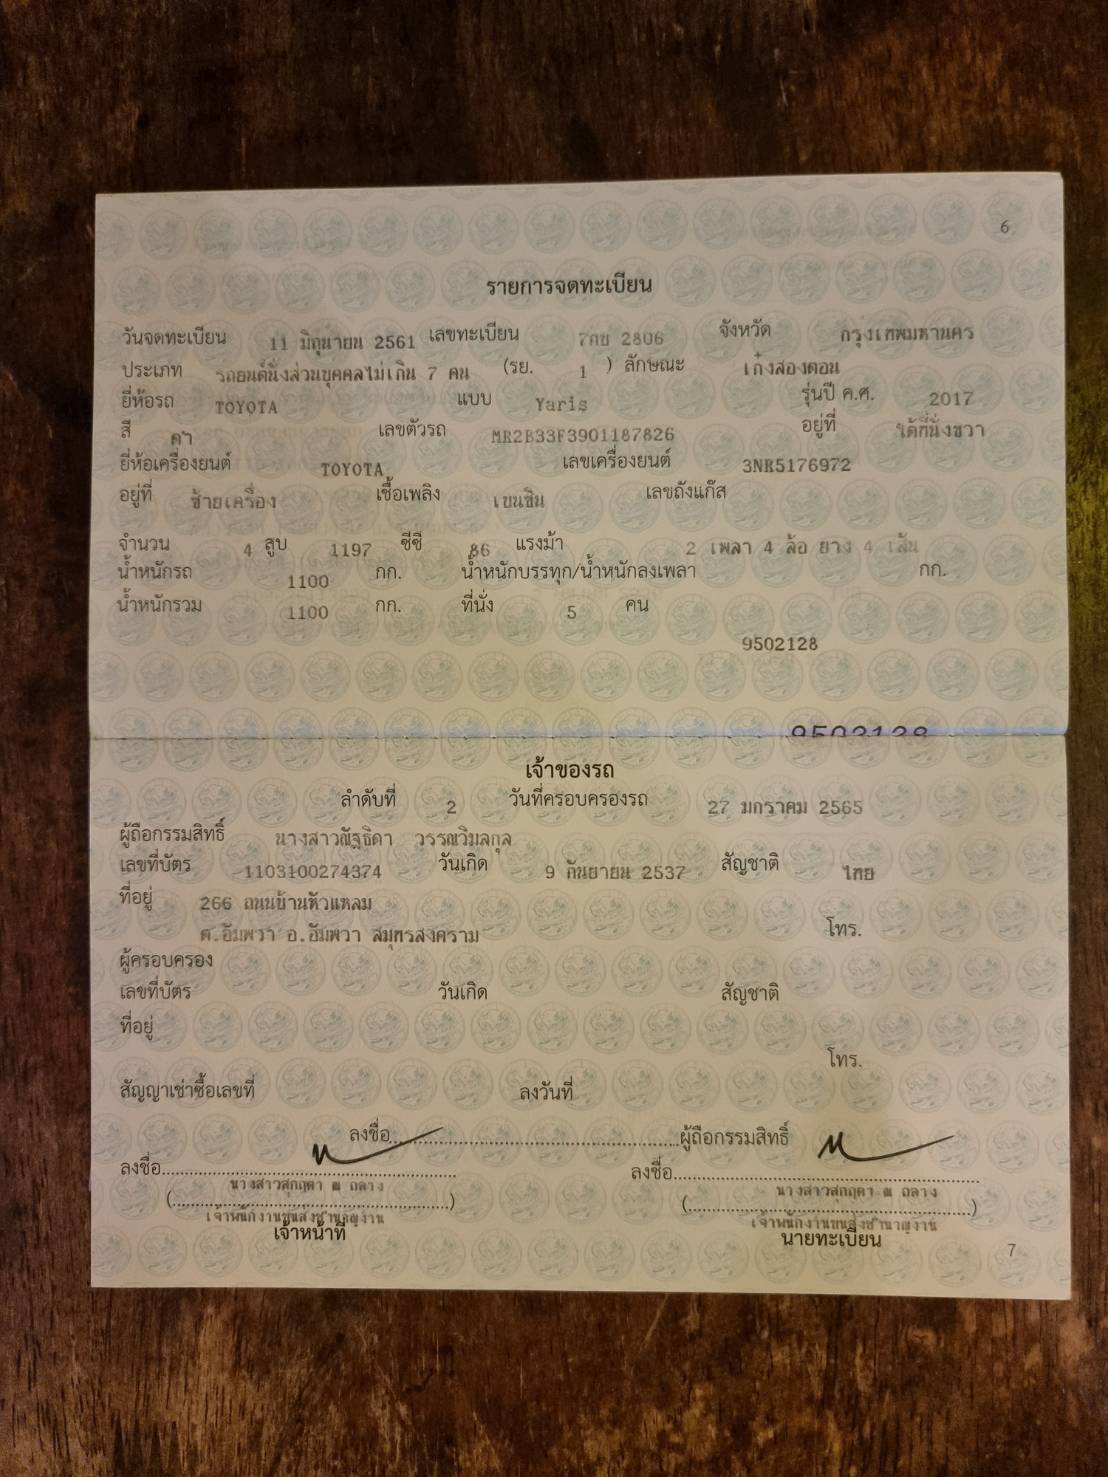 6
รายการจดทะเบียน
วันจดทะเบียน 11 มิถุนายน 2561 เลขทะเบียน 7กข 2806 จังหวัด กรุงเทพมหานคร
ประเภท รถยนต์นั่งส่วนบุคคลไม่เกิน 7 คน (รย. 1 ) ลักษณะ เก๋งสองตอน
ยี่ห้อรถ TOYOTA แบบ Yaris รุ่นปี ค.ศ. 2017
สี ดำ เลขตัวรถ MR2B33F3901187826 อยู่ที่ ใต้ที่นั่งขวา
ยี่ห้อเครื่องยนต์ TOYOTA เลขเครื่องยนต์ 3NR5176972
อยู่ที่ ซ้ายเครื่อง เชื้อเพลิง เบนซิน เลขถังแก๊ส
จำนวน 4 สูบ 1197 ซีซี 86 แรงม้า 2 เพลา 4 ล้อ ยาง 4 เส้น
น้ำหนักรถ 1100 กก. น้ำหนักบรรทุก/น้ำหนักลงเพลา กก.
น้ำหนักรวม 1100 กก. ที่นั่ง 5 คน
9502128
9502128
เจ้าของรถ
ลำดับที่ 2 วันที่ครอบครองรถ 27 มกราคม 2565
ผู้ถือกรรมสิทธิ์ นางสาวณัฐธิดา วรรณวิมลกุล
เลขที่บัตร 1103100274374 วันเกิด 9 กันยายน 2537 สัญชาติ ไทย
ที่อยู่ 266 ถนนบ้านหัวแหลม
ต.อัมพวา อ.อัมพวา สมุทรสงคราม โทร.
ผู้ครอบครอง
เลขที่บัตร วันเกิด สัญชาติ
ที่อยู่
โทร.
สัญญาเช่าซื้อเลขที่ ลงวันที่
ลงชื่อ ผู้ถือกรรมสิทธิ์
ลงชื่อ ลงชื่อ
นางสาวสุกฤตา ณ ถลาง นางสาวสุกฤตา ณ ถลาง
( ) ( )
เจ้าพนักงานขนส่งชำนาญงาน เจ้าพนักงานขนส่งชำนาญงาน
เจ้าหน้าที่ นายทะเบียน
7